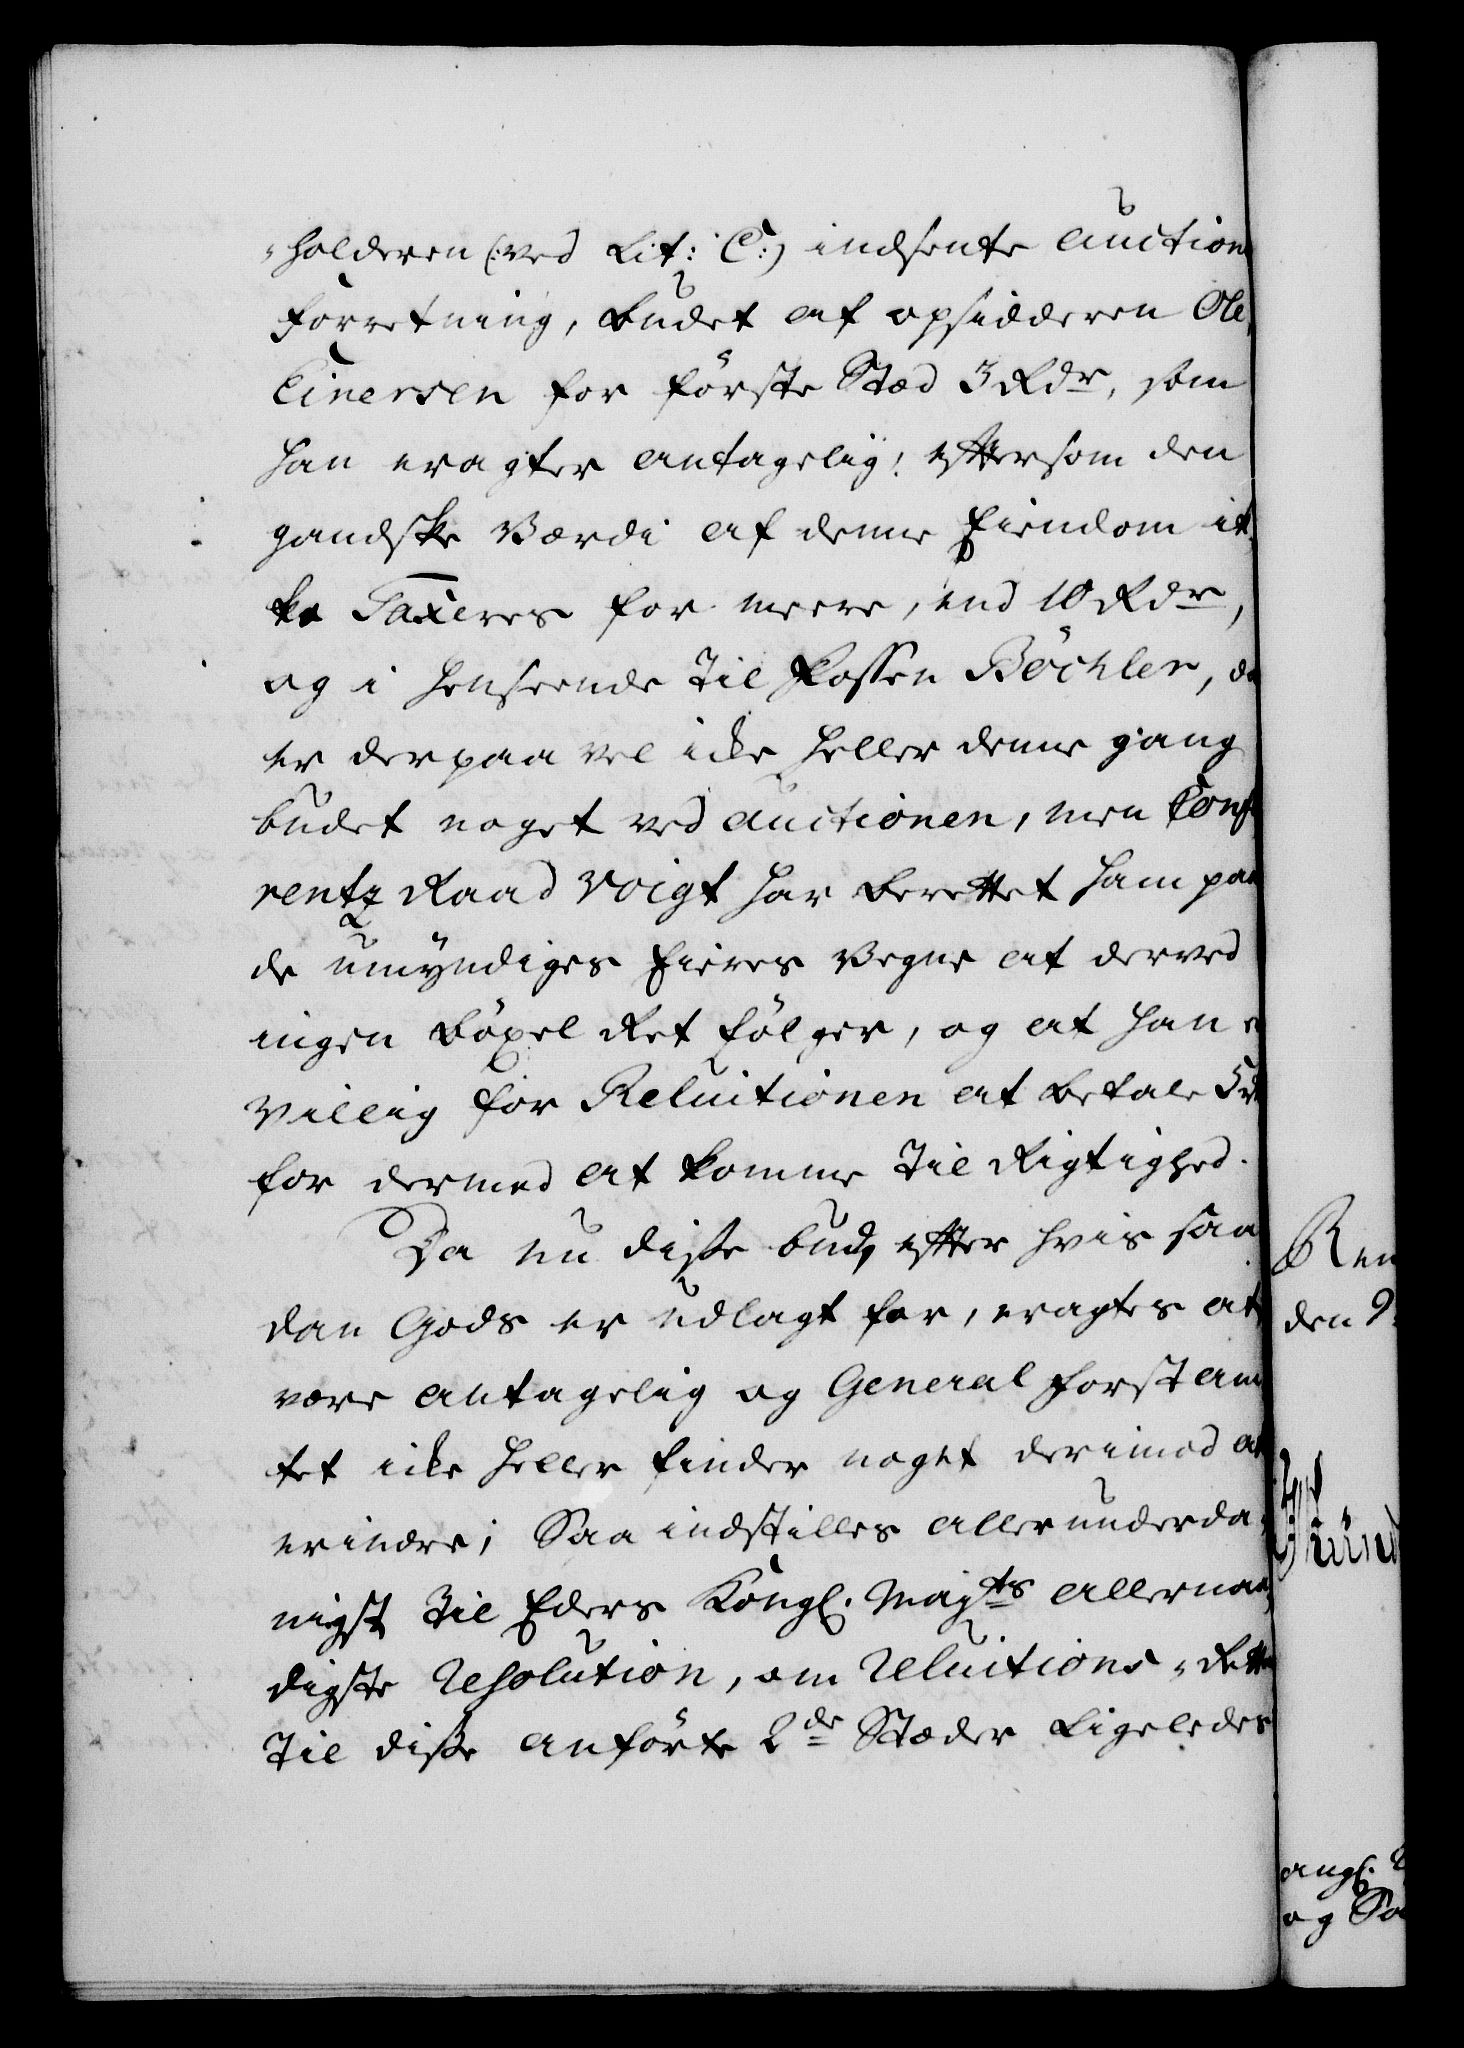 -holderen (:ved Lit: C:) indsente Auction
Forretning, budet af opsidderen Ole
Einersen for første Stæd 3 Rdr, som
han eragter antagelig; eftersom den
gandske Værdi af denne Eiendom ik
ke Taxeres for meere, end 10 Rdr,
og i henseende til Fossen Böchler, da
er derpaa vel icke heller denne gang
budet noget ved Auctionen, men Conf
rentz Raad Voigt har berettet ham paa
de umÿndiges Eieres Vegne at derved
ingen böxel Ret følger, og at han e
villig for Reluitionen at betale 5
for dermed at komme til Rigtighed.
Da nu disse bud, efter hvis saa
dan Gods er udlagt for, eragtes at
være antagelig og General Forst Am
tet icke heller finder noget derimod at
erindre; Saa indstilles allerunderda-
nigst til Eders Kongl. Mayts allernaa
digste Resolution, om Reluitions-Rette
til disse anførte 2de Stæder ligeledes
Ren
den 9
angl.
og Sa